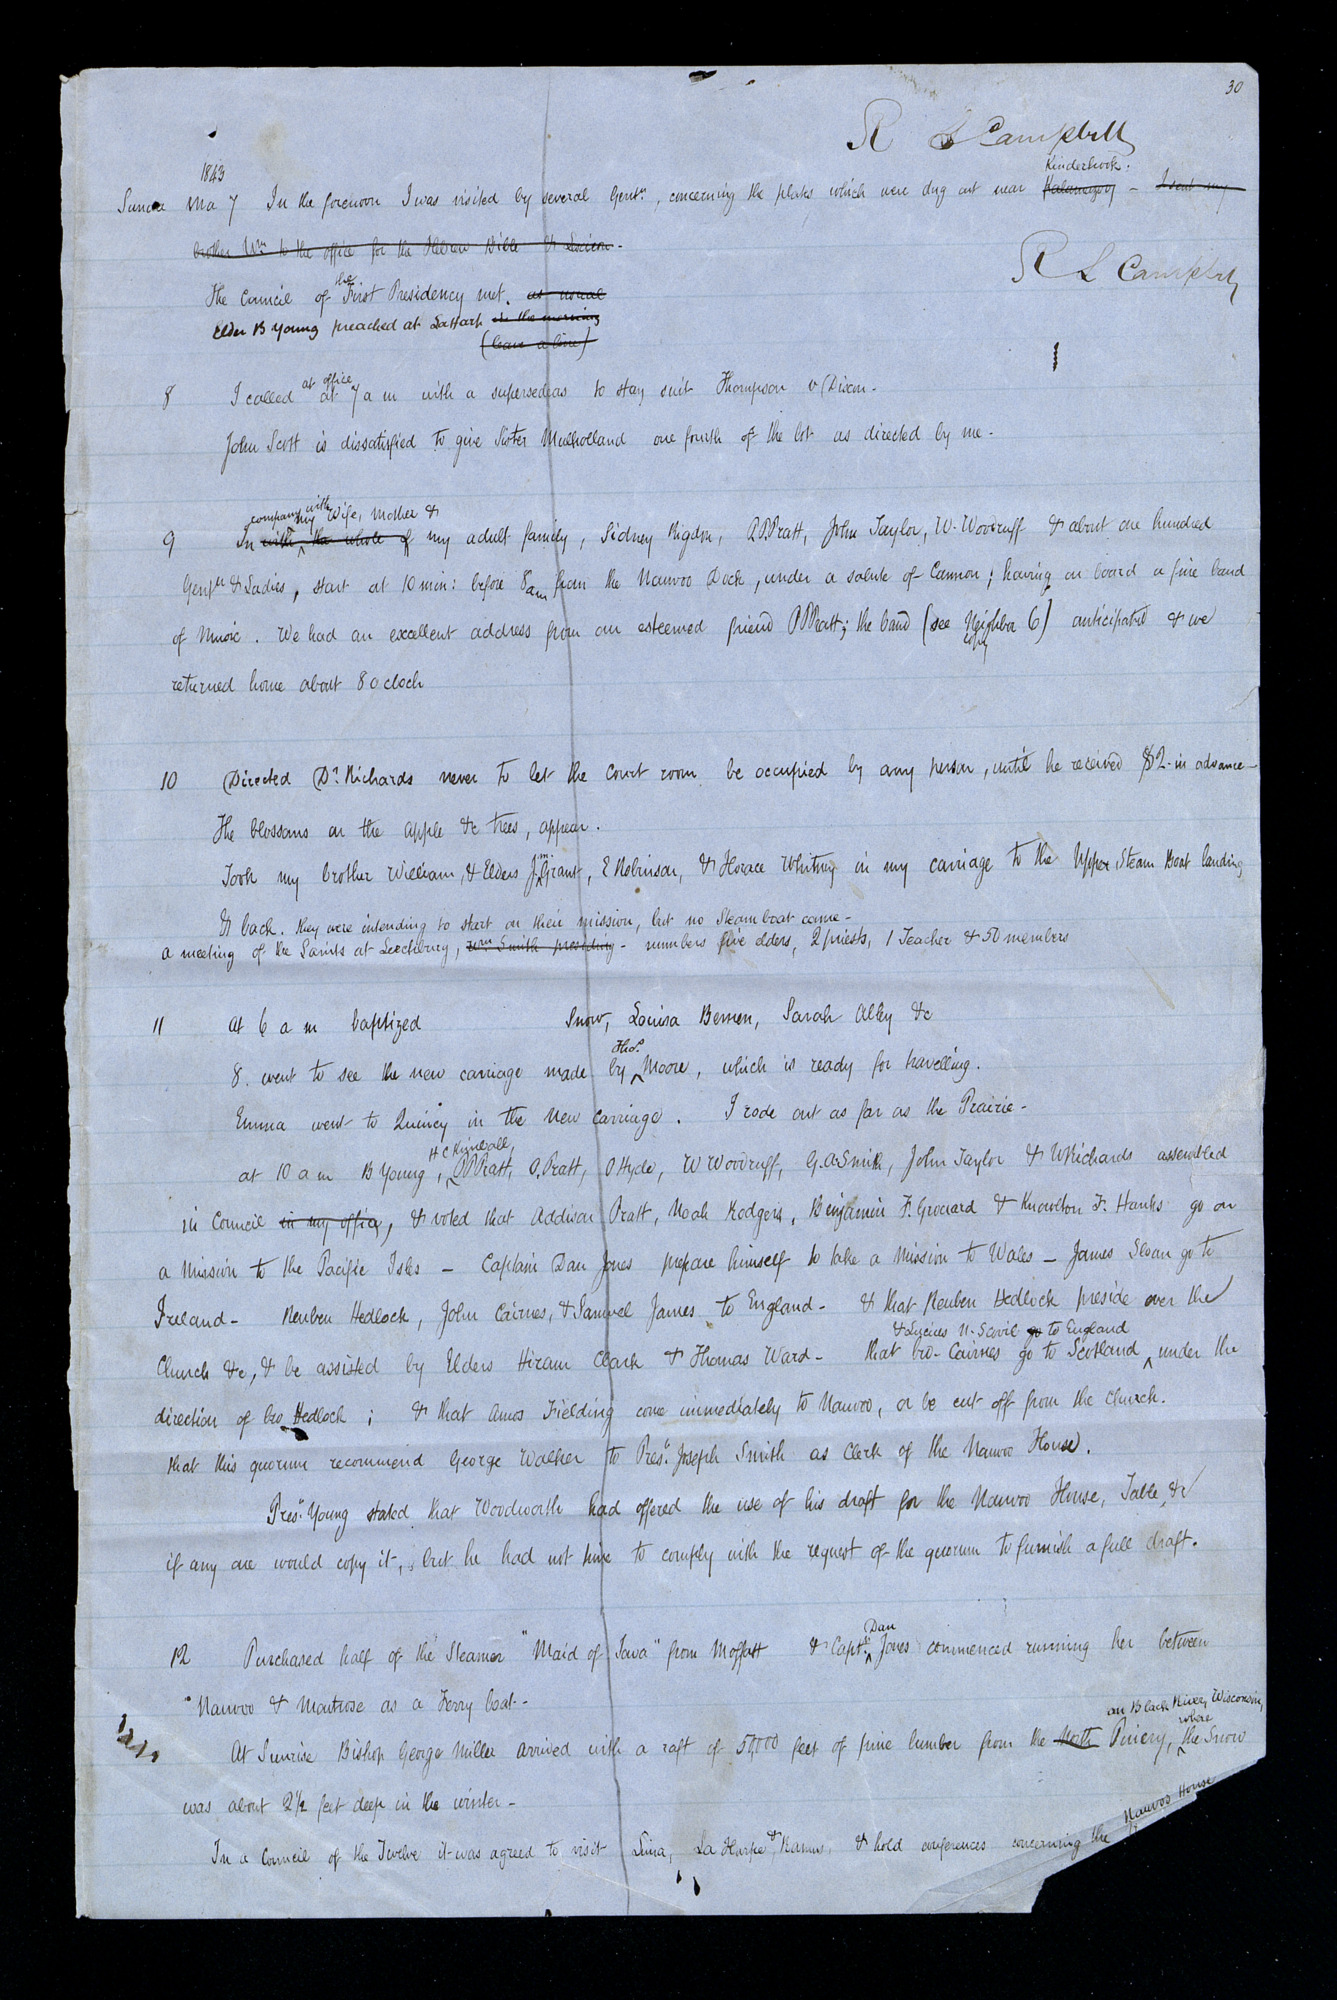 30
R L Campbell
1843
Kinderhook.
Sunda Ma 7 In the forenoon I was visited by several Gentn, concerning the plates which were dug out near Kalamazoo – I sent my
brother Wm to the office for the Hebrew Bible & Lexicon -
R L Campbell
the
The Council of First Presidency met. as usual
Elder B Young preached at LaHarp in the morning
(leave a line)
at office
8 I called at 7 a m with a supersedeas to stay suit Thompson v Dixon -
John Scott is dissatisfied to give Sister Mulholland one fourth of the lot as directed by me -
company with
my Wife, Mother &
9 In with the whole of my adult family, Sidney Rigdon, P.P. Pratt, John Taylor, W. Woodruff & about one hundred
Gentn & Ladies, start at 10 min: before 8 am from the Nauvoo Dock, under a salute of Cannon; having on board a fine band
of Music. We had an excellent address from our esteemed friend P P Pratt; the band (see Neighbor 6) anticipated & we
copy
returned home about 8 o clock
10 Directed Dr. Richards never to let the Court room be occupied by any person, until he received $2. in advance -
The blossoms on the apple &c trees, appear.
m
Took my brother William, & Elders J Grant, E Robinson, & Horace Whitney in my carriage to the Upper Steam Boat landing
& back. they were intending to start on their mission, but no Steamboat came -
a meeting of the Saints at Leechburg, Wm Smith presiding - numbers five elders, 2 priests, 1 Teacher & 50 members
11 At 6 a m baptized Snow, Louisa Bemen, Sarah Alley &c
Thos.
8. went to see the new carriage made by Moore, which is ready for travelling.
Emma went to Quincy in the new carriage. I rode out as far as the Prairie -
H C Kimball,
at 10 a m B Young, P P Pratt, O. Pratt, O Hyde, W Woodruff, G. A. Smith, John Taylor & W Richards assembled
in Council in my office, & voted that Addison Pratt, Noah Rodgers, Benjamin F. Grouard & Knowlton F. Hanks go on
a mission to the Pacific Isles – Captain Dan Jones prepare himself to take a mission to Wales – James Sloan go to
Ireland – Reuben Hedlock, John Cairnes, & Samuel James to England – & that Reuben Hedlock preside over the
& Lucius N. Scovil go to England
Church &c, & be assisted by Elders Hiram Clark & Thomas Ward – that bro. Cairnes go to Scotland under the
direction of bro Hedlock; & that Amos Fielding come immediately to Nauvoo, or be cut off from the Church.
that this quorum recommend George Walker to Prest. Joseph Smith as Clerk of the Nauvoo House.
Prest. Young stated that Woodworth had offered the use of his draft for the Nauvoo House, Table, &c
if any one would copy it, but he had not time to comply with the request of the quorum to furnish a full draft.
Dan
12 Purchased half of the Steamer "Maid of Iowa" from Moffatt & Captn. Jones commenced running her between
Nauvoo & Montrose as a Ferry boat. -
on Black River, Wisconsin,
where
At Sunrise Bishop George Miller arrived with a raft of 50,000 feet of pine lumber from the North Pinery, the Snow
was about 2½ feet deep in the winter -
Nauvoo House
In a Council of the Twelve it was agreed to visit Lima, La Harpe & Ramus, & hold conferences concerning the